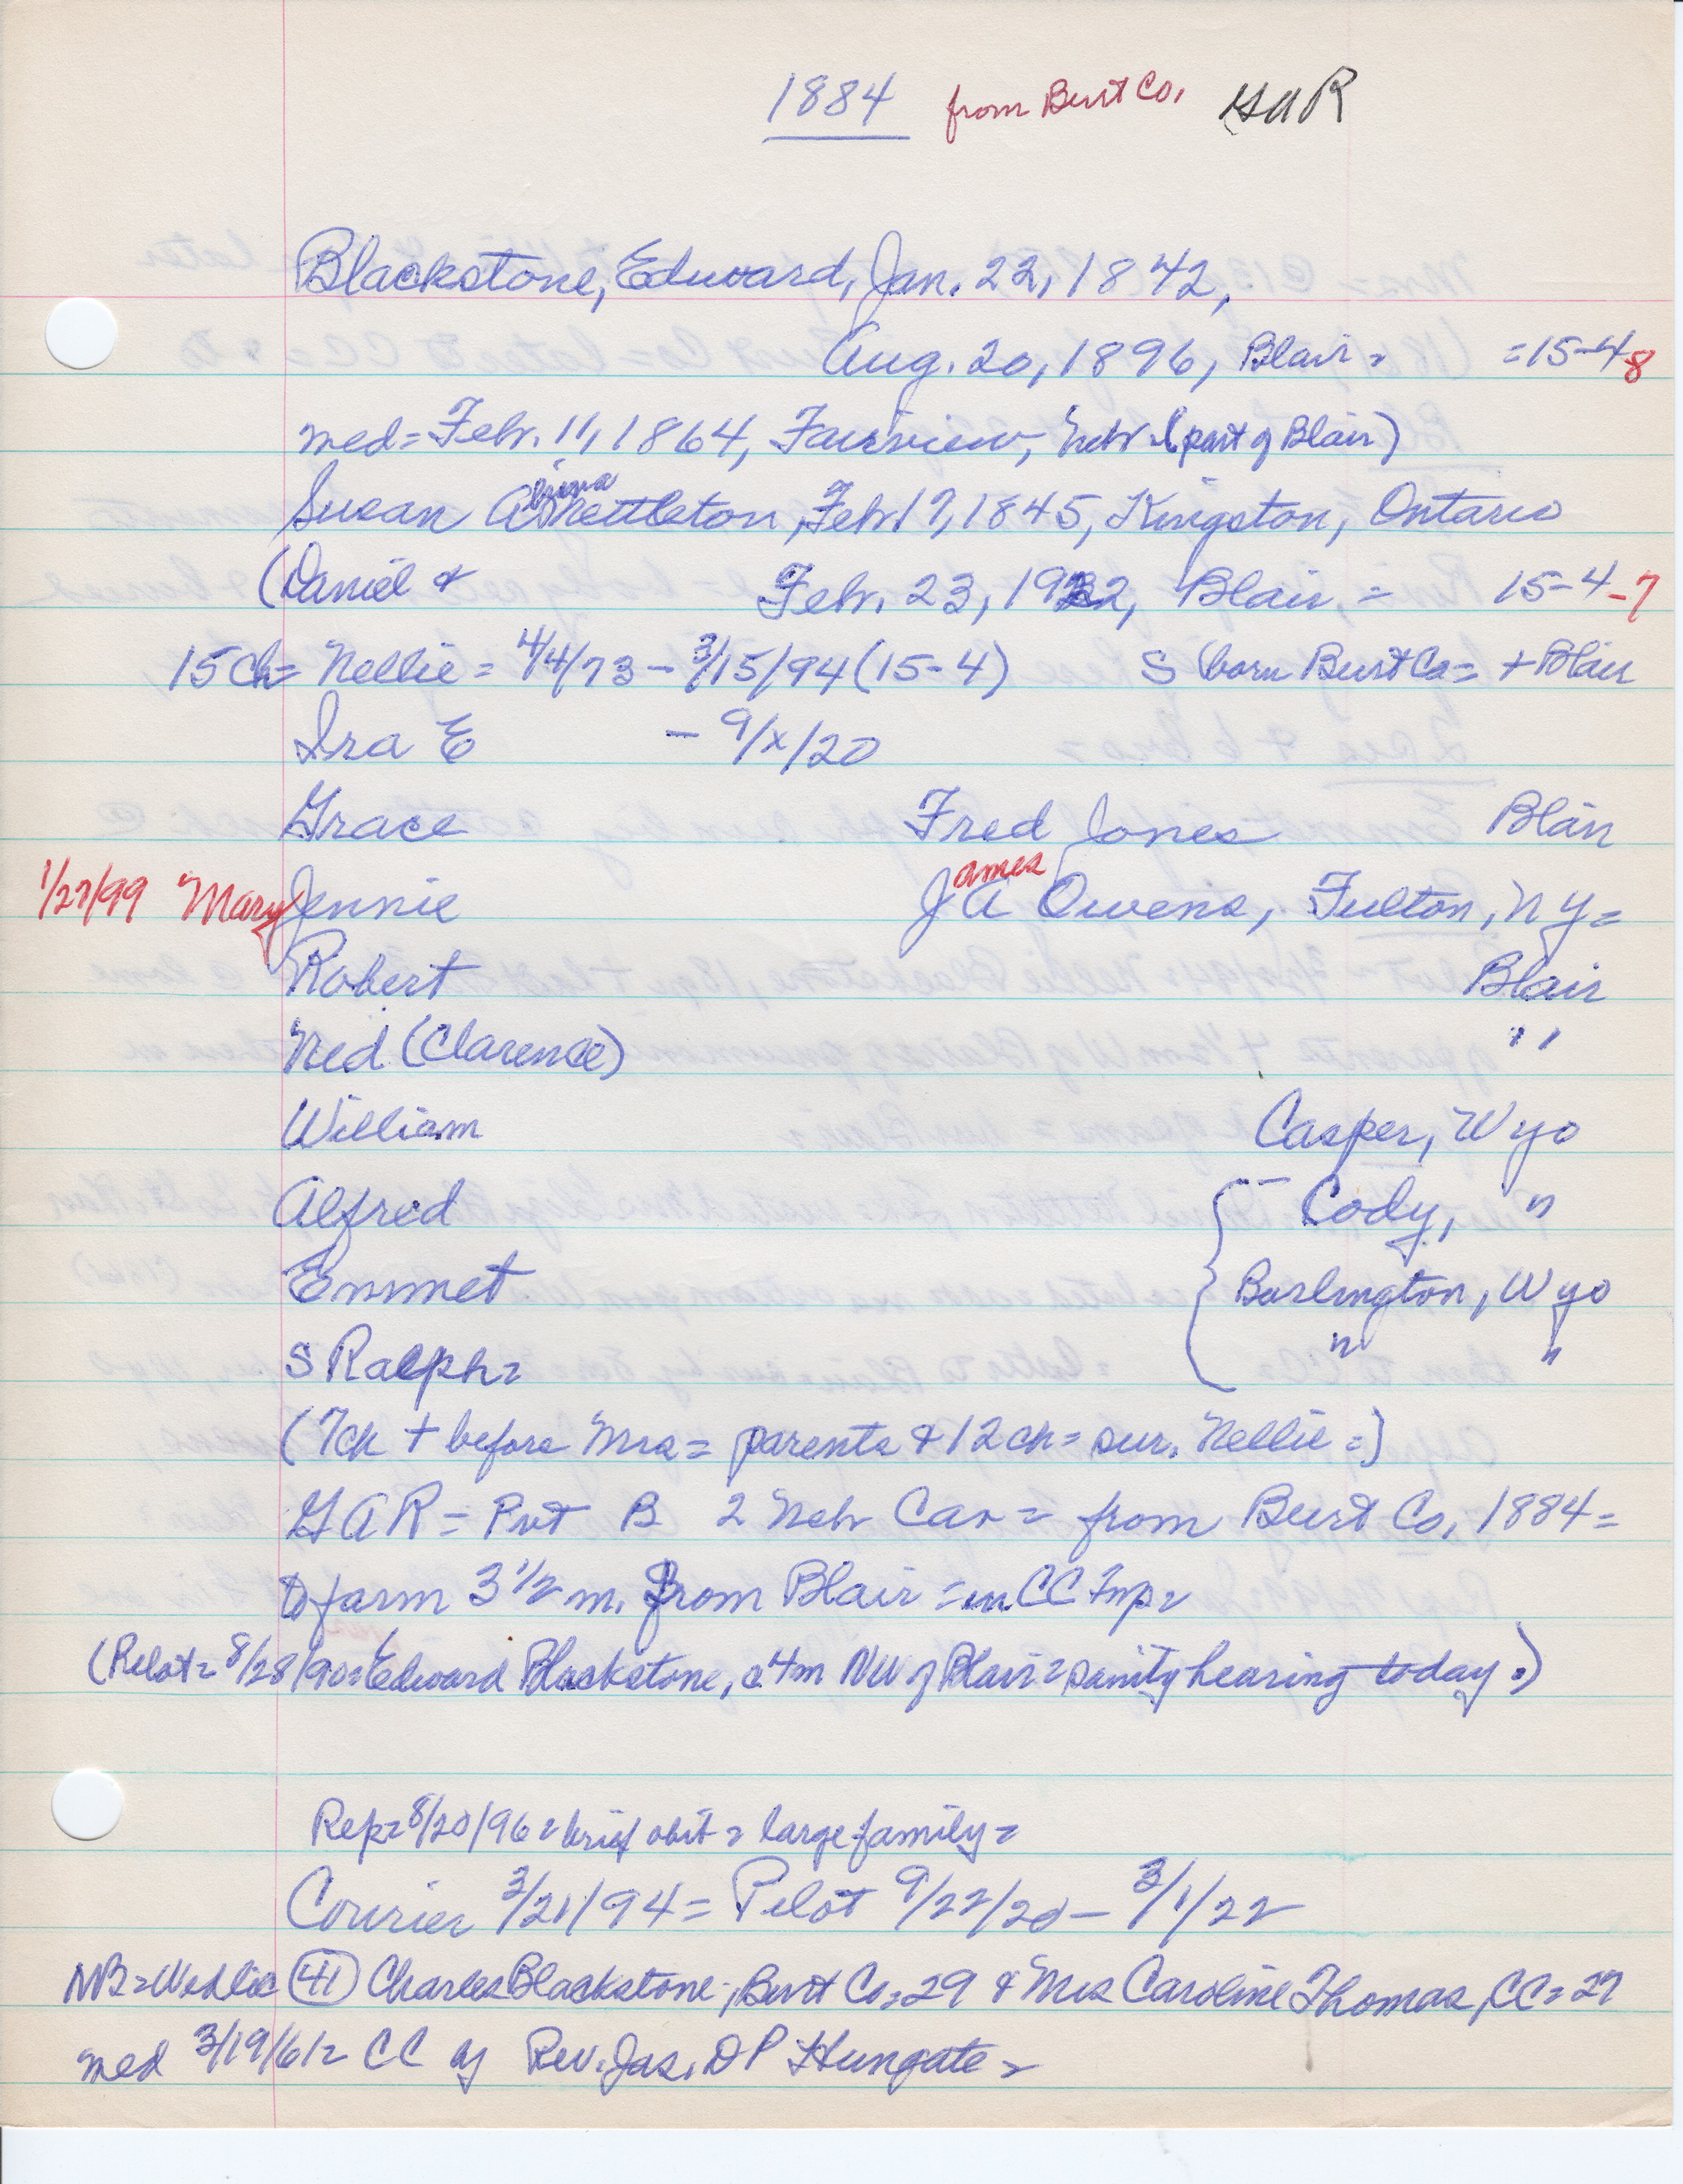 1884 from Burt Co, GAR
Blackstone, Edward, Jan. 22, 1842,
Aug. 20, 1896, Blair = =15-4-8
med= Feb. 11, 1864, Fairview, Neb (part of Blair)
Susan Nettleton, Feb 17, 1845, Kingston, Ontario
(Daniel & Feb. 23, 1922, Blair, = 15-4-7
15 ch= Nellie = 4/4/73 - 3/15/94 (15-4) S born Burt Co= + Blair
Ira E - 9/x/20
Grace Fred Jones Blair
1/27/99 Mary Jennie James A Owens, Fulton, NY=
Robert Blair
Ned (Clarence) "
William Casper, Wyo
Alfred Cody, "
Emmet Burlington, Wyo
S Ralph= " "
(7ch + before Mrs= parents & 12 ch= sur. Nellie=)
GAR - Pvt B 2 Neb Cav = from Burt Co, 1884=
to farm 3 1/2 m. from Blair = in CC Twp=
(Pilot= 8/28/90= Edward Blackstone, c 4m NW of Blair= sanity hearing today.)
Rep= 8/20/96= brief obit= large family=
Courier 3/21/94= Pilot 9/22/20- 3/1/22
NB= Wed lic (41) Charles Blackstone, Burt Co= 29 & Mrs Caroline Thomas, CC= 27
med 3/19/61= CC by Rev. Jas. DP Hungate=